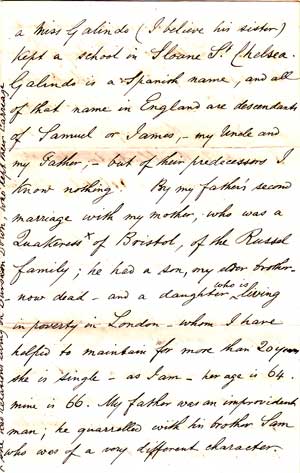 a Miss Galindo (I believe his sister)
kept a school in Sloane St. Chelsea.
Galindo is a Spanish name, and all
of that name in England are descendants
of Samuel or James, – my Uncle and
my Father, – but of their predecessors I
know nothing. By my father's second
marriage with my mother, who was a
Quakeress x of Bristol, of the Russel
family; he had a son, my elder brother
now dead – and a daughter who is living
in poverty in London – whom I have
helped to maintain for more than 20 years
she is single – as I am – her age is 64.
mine is 66. My father was an improvident
man; he quarrelled with his brother Sam
who was of a very different character.
relations living on Down, who kept their carriage